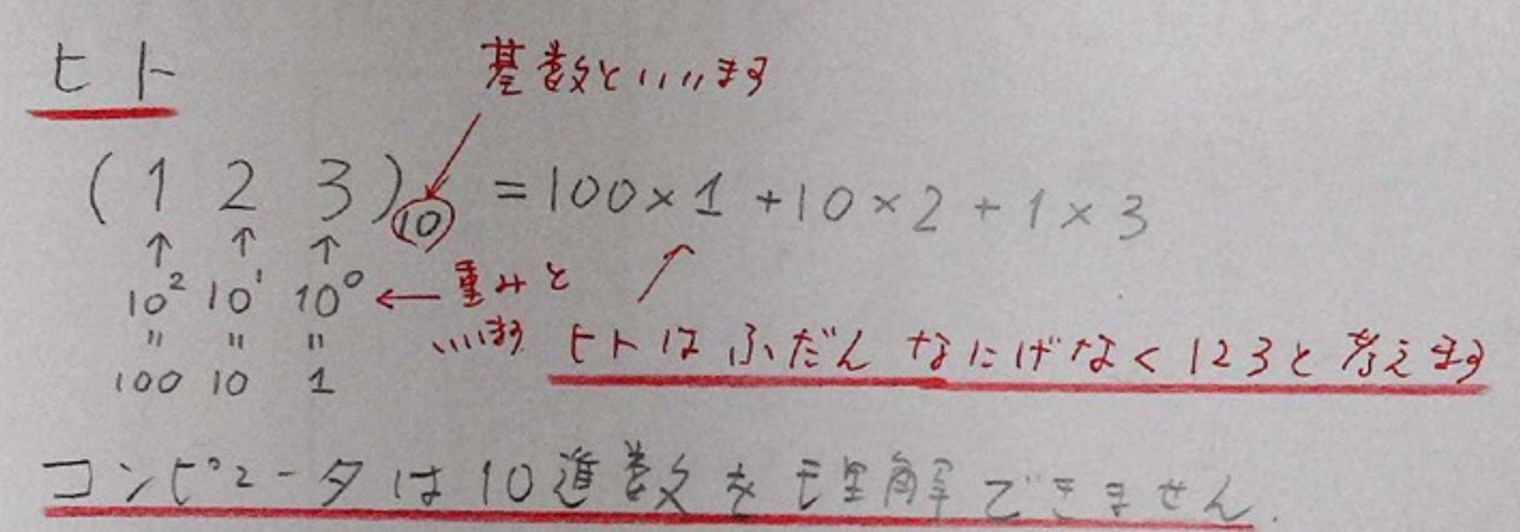 ヒト
基数といいます
(1 2 3)₁₀ = 100×1 +10×2 + 1×3
↑ ↑ ↑
10² 10¹ 10⁰ ← 重みと
いいます
〃 〃 〃
100 10 1
ヒトはふだん なにげなく 123と考えます
コンピュータは10進数を理解できません.